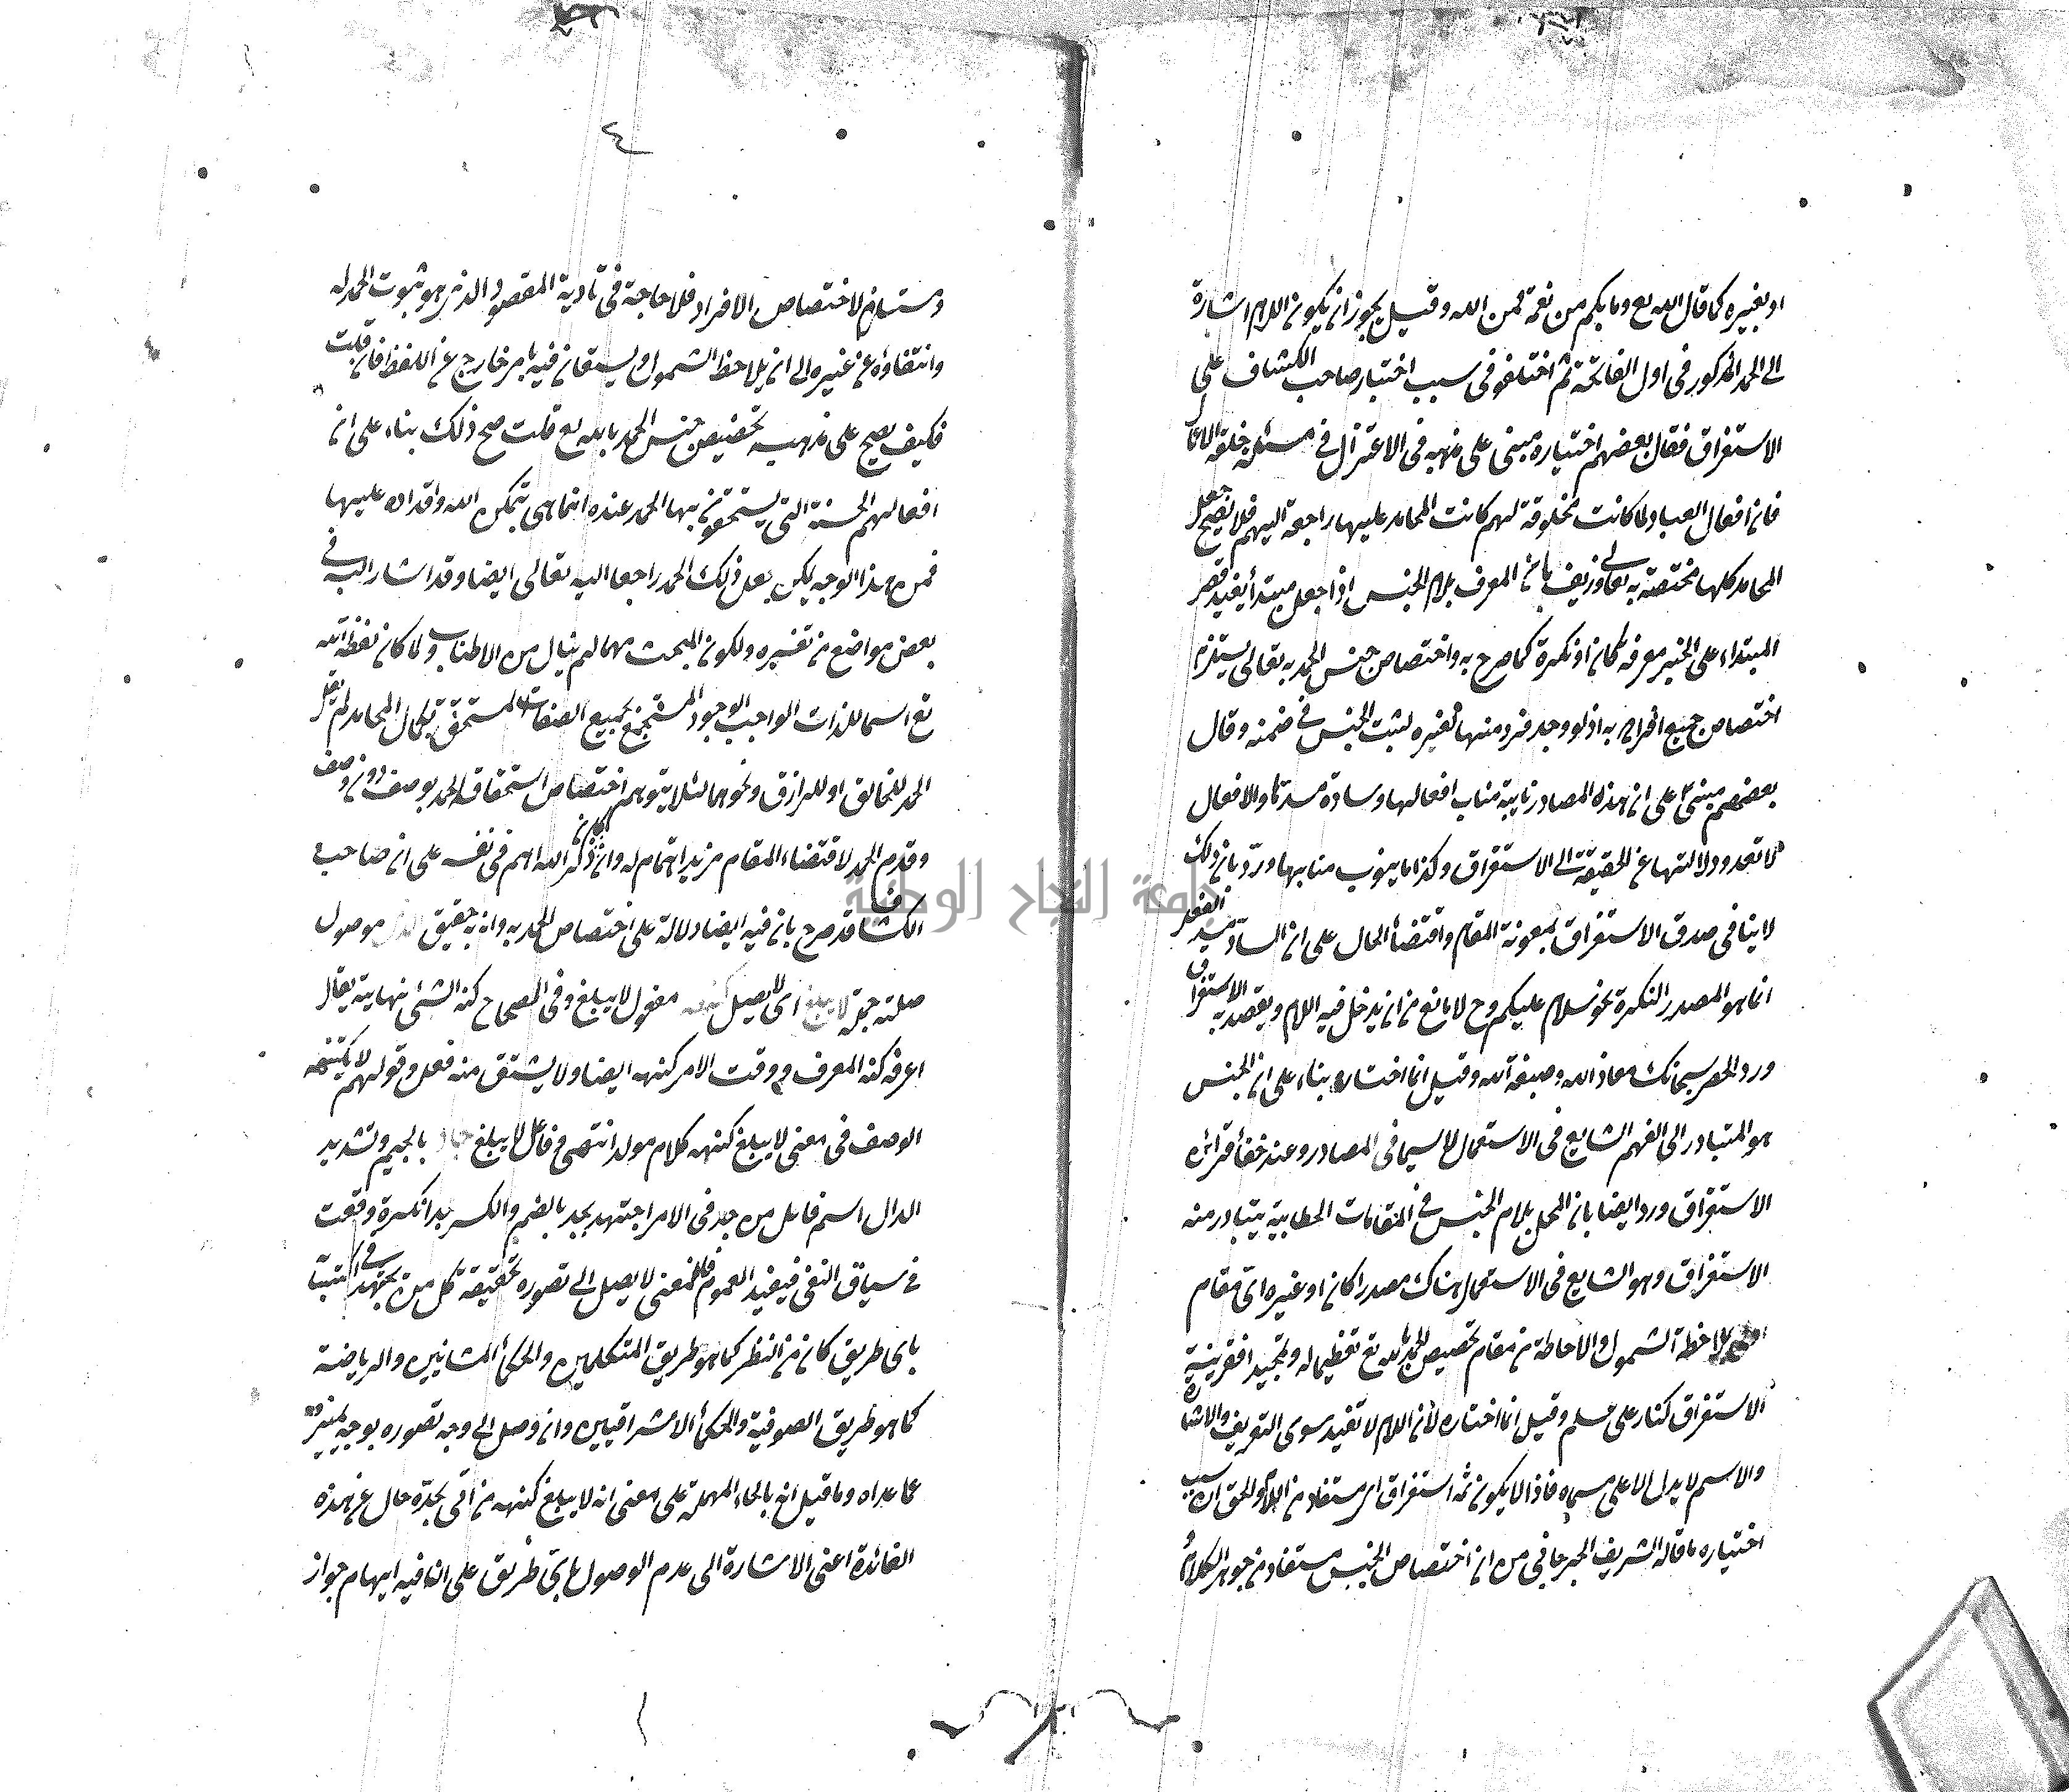 او بغيره كما قال الله تع وما بكم من نعمة فمن الله وقيل يجوز ان يكون اللام اشارة
الى الحمد المذكور في اول الفاتحة ثم اختلفو في سبب اختيار صاحب الكشاف على
الاستغراق فقال بعضهم اختياره مبنى على مذهبه في الاعتزال في مسئلة خلق الاعمال
فان افعال العباد لما كانت مخلوقة لهم كانت المحامد عليها راجعة اليهم فلا يصح جعل
المحامد كلها مختصة به تعالى وزيف بان المعرف بلام الجنس اذا جعل مبتدأ يفيد قصر
المبتداء على الخبر معرفة كان او نكرة كما صرح به واختصاص جنس الحمد به تعالى يستلزم
اختصاص جميع افراده به اذ لو وجد فرد منها لغيره لثبت الجنس في ضمنه وقال
بعضهم مبنى على ان هذه المصادر نايبة مناب افعالها وسادة مسدها والافعال
لا تعدو دلالتها عن الحقيقة الى الاستغراق وكذا ما ينوب منابها ورد بان ذلك
لا ينافى صدق الاستغراق بمعونة المقام واقتضأ الحال على ان الساد مسد الفعل
انما هو المصدر النكرة نحو سلام عليكم وح لا مانع من ان يدخل فيه اللام ويقصد به الاستغراق
ورد الحصر سبحانك معاذ الله وصبغة الله وقيل انما اختاره بناء على ان الجنس
هو المتبادر الى الفهم الشايع في الاستعمال لا سيما في المصادر وعند خفأ قرائن
الاستغراق ورد ايضا بان المحلى بلام الجنس في المقامات الخطابية يتبادر منه
الاستغراق وهو الشايع في الاستعمال هناك مصدرا كان او غيره اى مقام
بملاحظة الشمول والاحاطة من مقام تخصيص الحمد بالله تع تعظيما له وتمجيدا فقرينية
الاستغراق كنار على علم وقيل انما اختاره لأن اللام لا تفيد سوى التعريف والاشارة
والاسم لا يدل الا على مسماه فاذا لا يكون ثمه استغراق اى مستفاد من اللام والحق ان سبب
اختياره ما قاله الشريف الجرجاني من ان اختصاص الجنس مستفاد من جوهر الكلام
٤
ومستلزم لاختصاص الافراد فلا حاجة في تأدية المقصود الذى هو ثبوت الحمد له
وانتفاؤه عن غيره الى ان يلاحظ الشمول ويستعان فيه بامر خارج عن اللفظ فان قلت
فكيف يصح على مذهبه تخصيص جنس الحمد بالله تع قلت صح ذلك بناء على ان
افعالهم الحسنة التى يستحقون بها الحمد عنده انما هى بتمكين الله واقداره عليها
فمن هذا الوجه يكن جعل ذلك الحمد راجعا اليه تعالى ايضا وقد اشار اليه في
بعض مواضع من تفسيره ولكون المبحث مهما لم نبال من الاطناب ولما كان لفظة الله
تع اسما للذات الواجب الوجود المستجمع بجميع الصفات المستحق بكمال المحامد لم يقل
الحمد للخالق او للرازق ونحوهما لئلا يتوهم اختصاص استحقاقه الحمد بوصف دون وصف
وقدم الحمد لاقتضاء المقام مزيد اهتمام له وان كان ذكر الله اهم في نفسه على ان صاحب
الكشاف قد صرح بان فيه ايضا دلالة على اختصاص الحمد به وانه به حقيق موصول
صلته جملة لا يبلغ اى لا يصل كنهه مفعول لا يبلغ وفى الصحاح كنه الشئ نهايته يقال
اعرفه كنه المعرفة ووقت الامر كنهه ايضا ولا يشتق منه فعل وقولهم لا يكتنهه
الوصف في معنى لا يبلغ كنهه كلام مولد انتهى وفاعل لا يبلغ جاد بالجيم وتشديد
الدال اسم فاعل من جد في الامر اجتهد يجد بالضم والكسر بدا نكرة وقعت
في سياق النفى فيفيد العموم فالمعنى لا يصل الى تصوره بحقيقة كل من يجتهد في
باى طريق كان من النظر كما هو طريق المتكلمين والحكمأ المشائيين والرياضة
كما هو طريق الصوفية والحكمأ الاشراقيين وان وصل الى وجه تصوره بوجه يميزه
عما عداه وما قيل انه بالحاء المهملة على معنى انه لا يبلغ كنهه من اتى بحده خال عن هذه
الفائدة اعنى الاشارة الى عدم الوصول باى طريق على ان فيه ايهام جواز
جامعة النجاح الوطنية